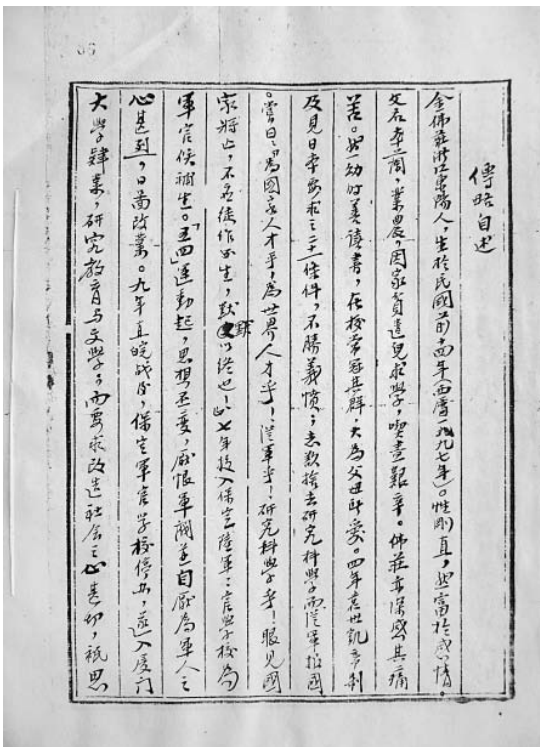 傳略自述
金佛莊浙江東陽人,生於民國前十四年(西曆一八九七年)。性剛直,也富於感情。
父在本蔄,業農,因家貧遣兒求學,喫盡艱辛。佛莊亦深感其痛
苦。她幼時善讀書,在校常冠其群,大為父母所愛。四年袁世凱帝制
及見日本要求之二十一條件,不勝義憤;去歎捨去研究科學而從軍報國
。嘗曰:「為國家人才乎,為世界人才乎!從軍乎!研究科學乎!眼見國
家將亡,不在徒作學生,默默以終也!」七年投入保定陸軍軍官學校為
軍官候補生。「五四」運動起,思想丕變,感恨軍閥並自厭為軍人之
心甚烈,日啚改業。九年直皖战後,保定軍官学校停办,遂入廈门
大學肄業,研究教育与文學;而要求改造社会之心甚切,祇思